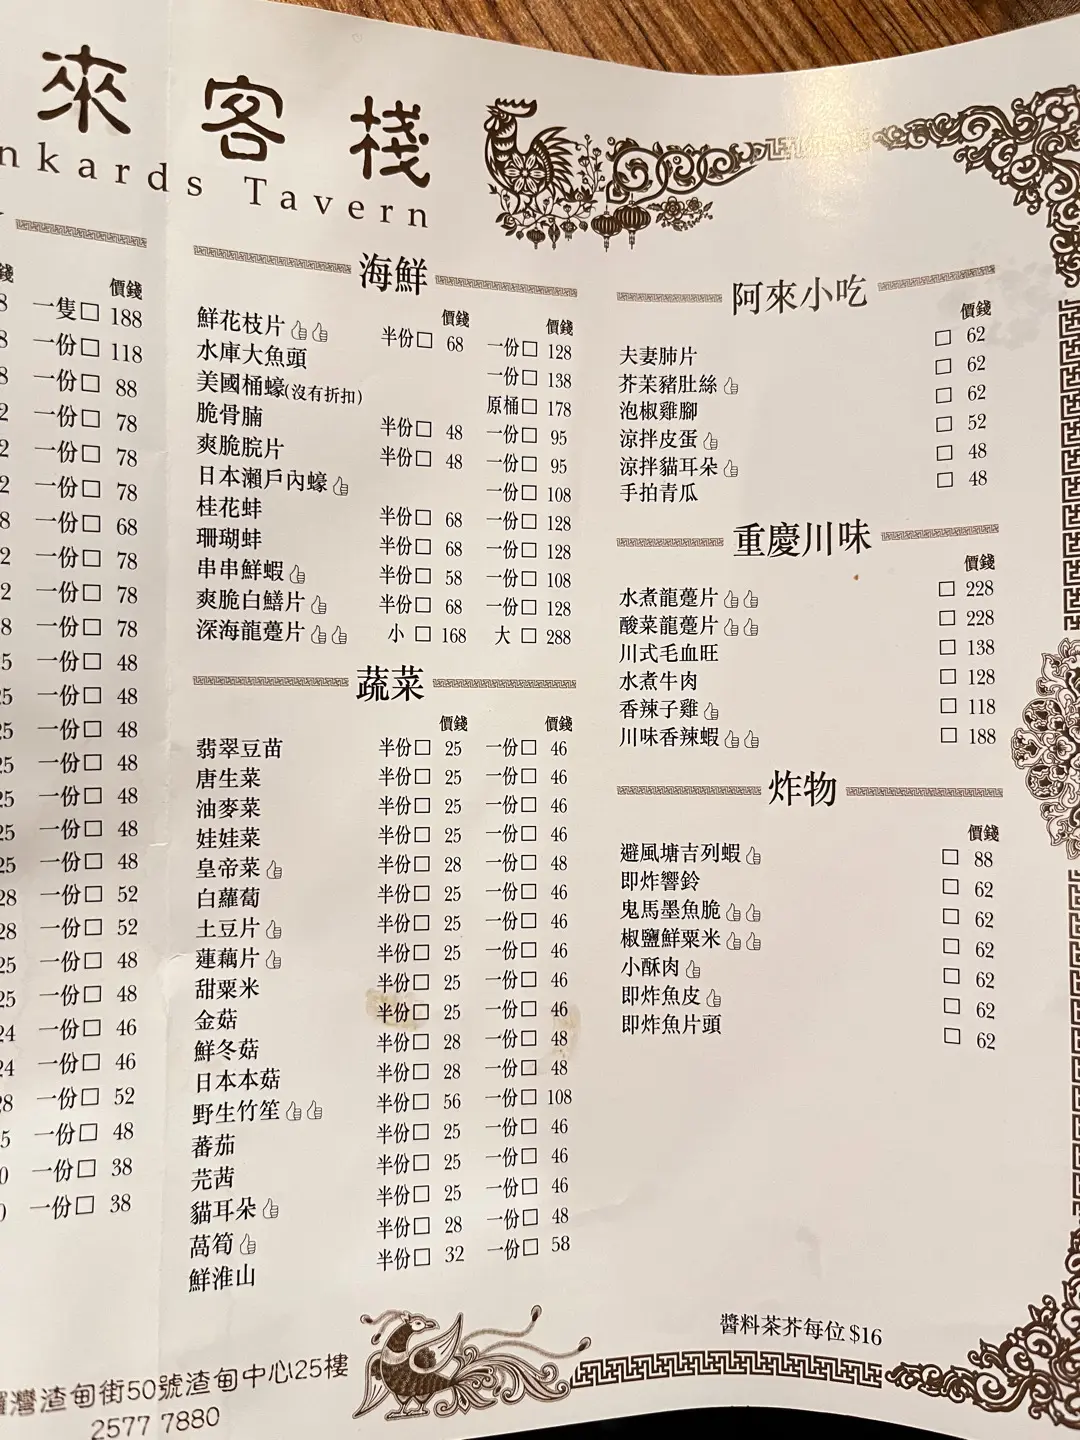 來客棧
nkards Tavern
價錢
一隻□ 188
一份□ 118
一份□ 88
一份□ 78
一份□ 78
一份□ 78
一份□ 68
一份□ 78
一份□ 78
一份□ 78
一份□ 48
一份□ 48
一份□ 48
一份□ 48
一份□ 48
一份□ 48
一份□ 48
一份□ 52
一份□ 52
一份□ 48
一份□ 48
一份□ 46
一份□ 46
一份□ 52
一份□ 48
一份□ 38
一份□ 38
海鮮
價錢 價錢
鮮花枝片 半份□ 68 一份□ 128
水庫大魚頭 一份□ 138
美國桶蠔(沒有折扣) 原桶□ 178
脆骨腩 半份□ 48 一份□ 95
爽脆脘片 半份□ 48 一份□ 95
日本瀨戶內蠔 一份□ 108
桂花蚌 半份□ 68 一份□ 128
珊瑚蚌 半份□ 68 一份□ 128
串串鮮蝦 半份□ 58 一份□ 108
爽脆白鱔片 半份□ 68 一份□ 128
深海龍躉片 小 □ 168 大 □ 288
蔬菜
價錢 價錢
翡翠豆苗 半份□ 25 一份□ 46
唐生菜 半份□ 25 一份□ 46
油麥菜 半份□ 25 一份□ 46
娃娃菜 半份□ 25 一份□ 46
皇帝菜 半份□ 28 一份□ 48
白蘿蔔 半份□ 25 一份□ 46
土豆片 半份□ 25 一份□ 46
蓮藕片 半份□ 25 一份□ 46
甜粟米 半份□ 25 一份□ 46
金菇 半份□ 25 一份□ 46
鮮冬菇 半份□ 28 一份□ 48
日本本菇 半份□ 28 一份□ 48
野生竹笙 半份□ 56 一份□ 108
蕃茄 半份□ 25 一份□ 46
芫茜 半份□ 25 一份□ 46
貓耳朵 半份□ 25 一份□ 46
萵筍 半份□ 28 一份□ 48
鮮淮山 半份□ 32 一份□ 58
阿來小吃
價錢
夫妻肺片 □ 62
芥茉豬肚絲 □ 62
泡椒雞腳 □ 62
涼拌皮蛋 □ 52
涼拌貓耳朵 □ 48
手拍青瓜 □ 48
重慶川味
價錢
水煮龍躉片 □ 228
酸菜龍躉片 □ 228
川式毛血旺 □ 138
水煮牛肉 □ 128
香辣子雞 □ 118
川味香辣蝦 □ 188
炸物
價錢
避風塘吉列蝦 □ 88
即炸響鈴 □ 62
鬼馬墨魚脆 □ 62
椒鹽鮮粟米 □ 62
小酥肉 □ 62
即炸魚皮 □ 62
即炸魚片頭 □ 62
醬料茶芥每位 $16
灣渣甸街50號渣甸中心25樓
2577 7880